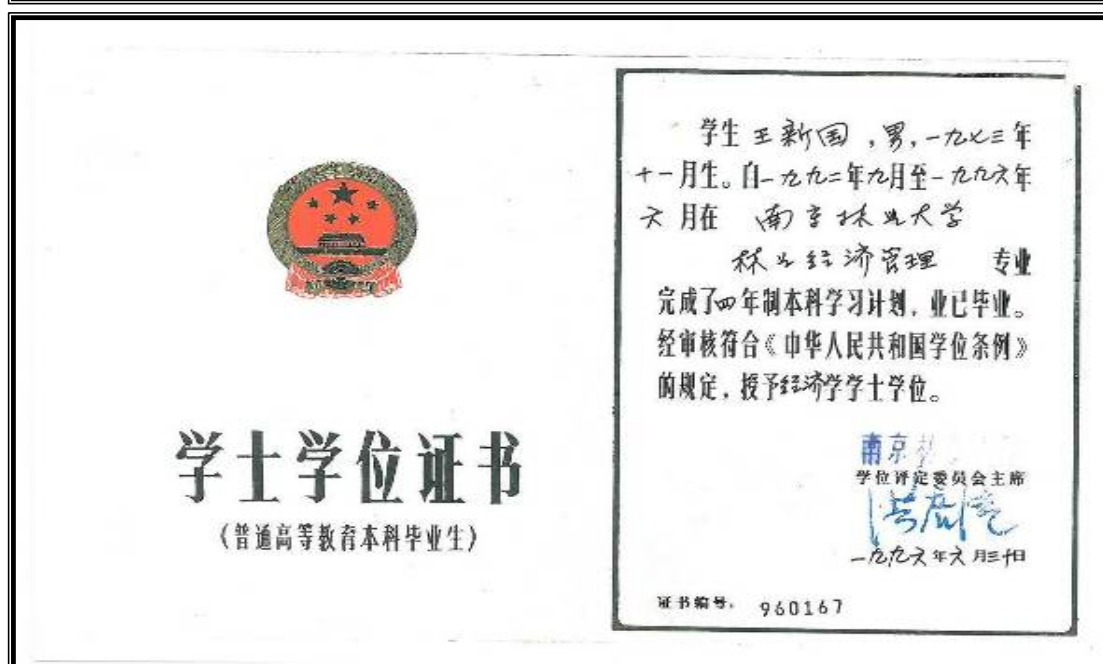 学士学位证书
(普通高等教育本科毕业生)
学生 王新国 ,男,一九七三年
十一月生。自一九九二年九月至一九九六年
六月在 南京林业大学
林业经济管理 专业
完成了四年制本科学习计划,业已毕业。
经审核符合《中华人民共和国学位条例》
的规定,授予经济学学士学位。
南京林
学位评定委员会主席
一九九六年六月三十日
证书编号: 960167